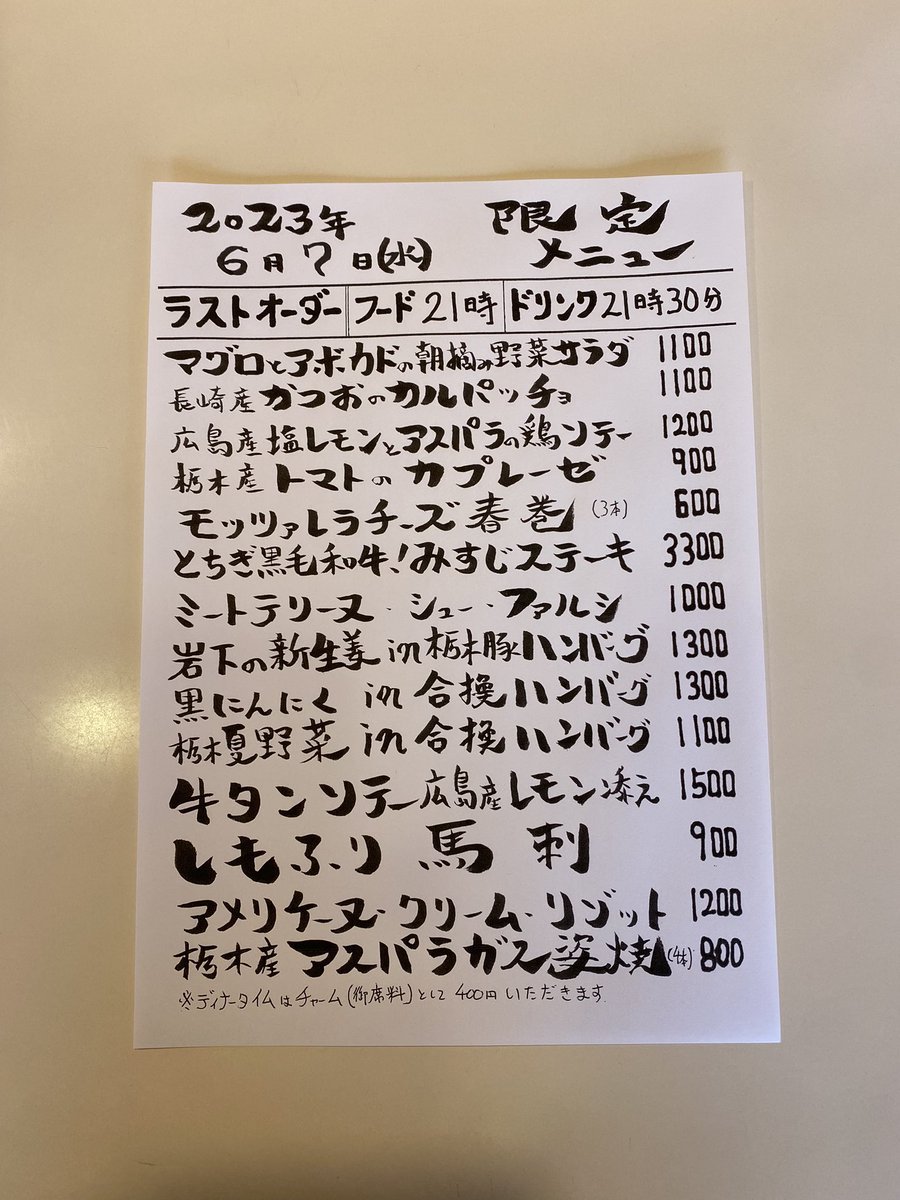 2023年 限定
6月7日(水) メニュー
ラストオーダー フード21時 ドリンク21時30分
マグロとアボカドの朝摘み野菜サラダ 1100
長崎産かつおのカルパッチョ 1100
広島産塩レモンとアスパラの鶏ソテー 1200
栃木産トマトのカプレーゼ 900
モッツァレラチーズ春巻(3本) 600
とちぎ黒毛和牛!みすじステーキ 3300
ミートテリーヌ・シュー・ファルシ 1000
岩下の新生姜in栃木豚ハンバーグ 1300
黒にんにくin合挽ハンバーグ 1300
栃木夏野菜in合挽ハンバーグ 1100
牛タンソテー広島産レモン添え 1500
しもふり馬刺 900
アメリケーヌ・クリーム・リゾット 1200
栃木産アスパラガス姿焼(4本) 800
※ディナータイムはチャーム(御席料)として400円いただきます.